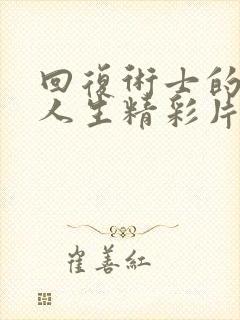 回復術士的
人生精彩片
崔善紅